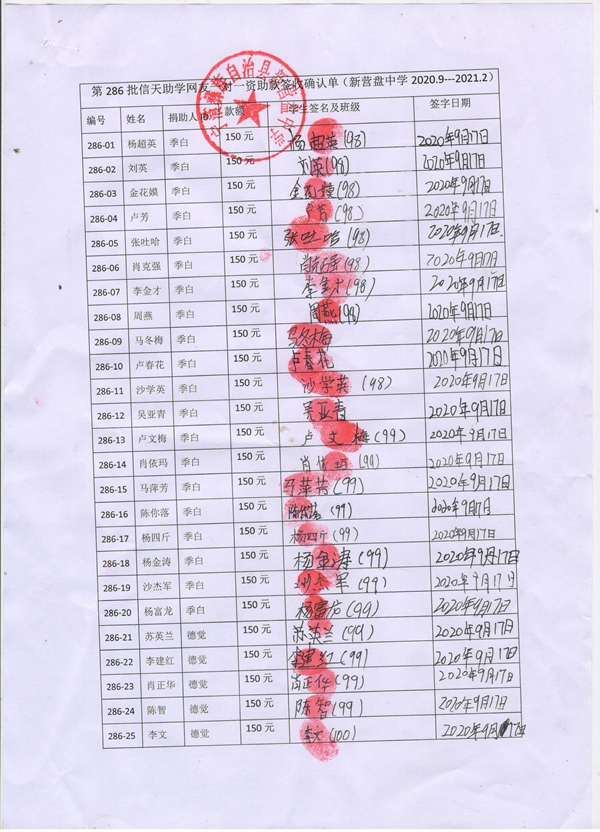 第 286 批信天助学网友一对一资助款签收确认单（新营盘中学 2020.9---2021.2）
编号 姓名 捐助人 款额 学生签名及班级 签字日期
286-01 杨超英 季白 150 元 杨超英(98) 2020年9月17日
286-02 刘英 季白 150 元 刘英(98) 2020年9月17日
286-03 金花嫫 季白 150 元 金花嫫(98) 2020年9月17日
286-04 卢芳 季白 150 元 卢芳(98) 2020年9月17日
286-05 张吐哈 季白 150 元 张吐哈(98) 2020年9月17日
286-06 肖克强 季白 150 元 肖克强(98) 2020年9月17日
286-07 李金才 季白 150 元 李金才(98) 2020年9月17日
286-08 周燕 季白 150 元 周燕(98) 2020年9月17日
286-09 马冬梅 季白 150 元 马冬梅 2020年9月17日
286-10 卢春花 季白 150 元 卢春花 2020年9月17日
286-11 沙学英 季白 150 元 沙学英(98) 2020年9月17日
286-12 吴亚青 季白 150 元 吴亚青 2020年9月17日
286-13 卢文梅 季白 150 元 卢文梅(99) 2020年9月17日
286-14 肖依玛 季白 150 元 肖依玛(99) 2020年9月17日
286-15 马萍芳 季白 150 元 马萍芳(99) 2020年9月17日
286-16 陈你落 季白 150 元 陈你落(99) 2020年9月17日
286-17 杨四斤 季白 150 元 杨四斤(99) 2020年9月17日
286-18 杨金涛 季白 150 元 杨金涛(99) 2020年9月17日
286-19 沙杰军 季白 150 元 沙杰军(99) 2020年9月17日
286-20 杨富龙 季白 150 元 杨富龙(99) 2020年9月17日
286-21 苏英兰 德觉 150 元 苏英兰(99) 2020年9月17日
286-22 李建红 德觉 150 元 李建红(99) 2020年9月17日
286-23 肖正华 德觉 150 元 肖正华(99) 2020年9月17日
286-24 陈智 德觉 150 元 陈智(99) 2020年9月17日
286-25 李文 德觉 150 元 李文(100) 2020年9月17日